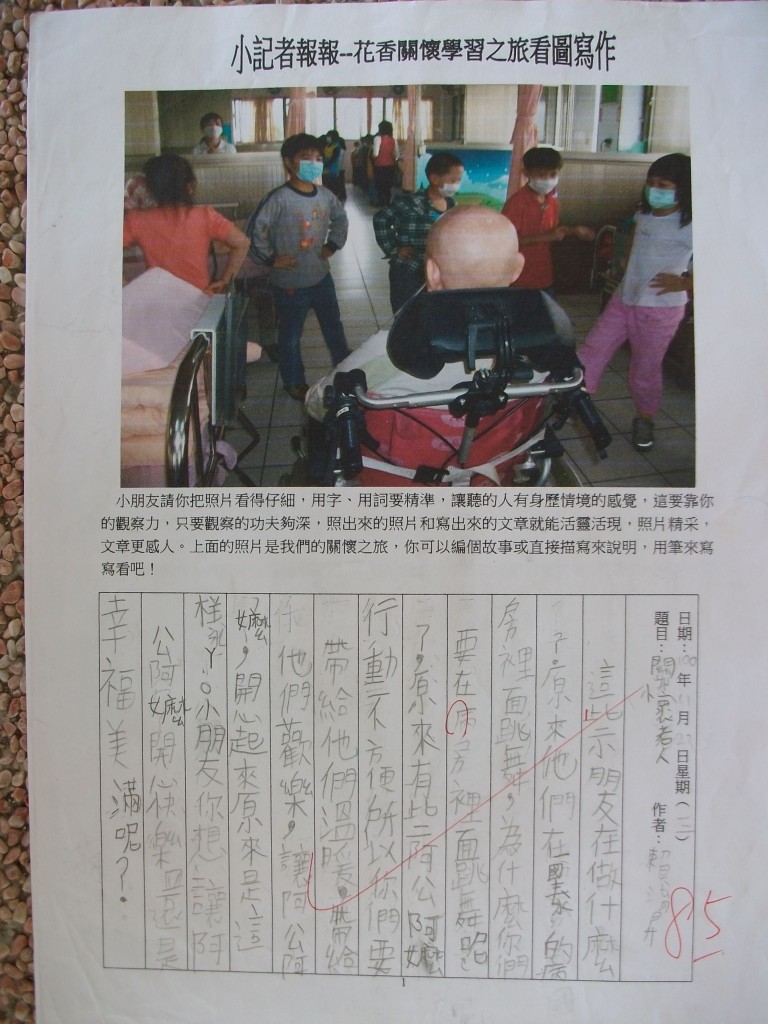 小記者報報--花香關懷學習之旅看圖寫作
小朋友請你把照片看得仔細，用字、用詞要精準，讓聽的人有身歷情境的感覺，這要靠你
的觀察力，只要觀察的功夫夠深，照出來的照片和寫出來的文章就能活靈活現，照片精采，
文章更感人。上面的照片是我們的關懷之旅，你可以編個故事或直接描寫來說明，用筆來寫
寫看吧！
日期：100年11月23日星期（三）
題目：關懷老人 作者：賴
85
這些小朋友在做什麼
了？原來他們在的病
房裡面跳舞，為什麼你們
要在病房裡面跳舞呢
了，原來有些阿公阿嬤
行動不方便所以你們要
帶給他們溫暖，帶給
他們歡樂，讓阿公阿
嬤，開心起來原來是這
樣ㄚ。小朋友你想讓阿
公阿嬤開心快樂還是
幸福美滿呢？
1